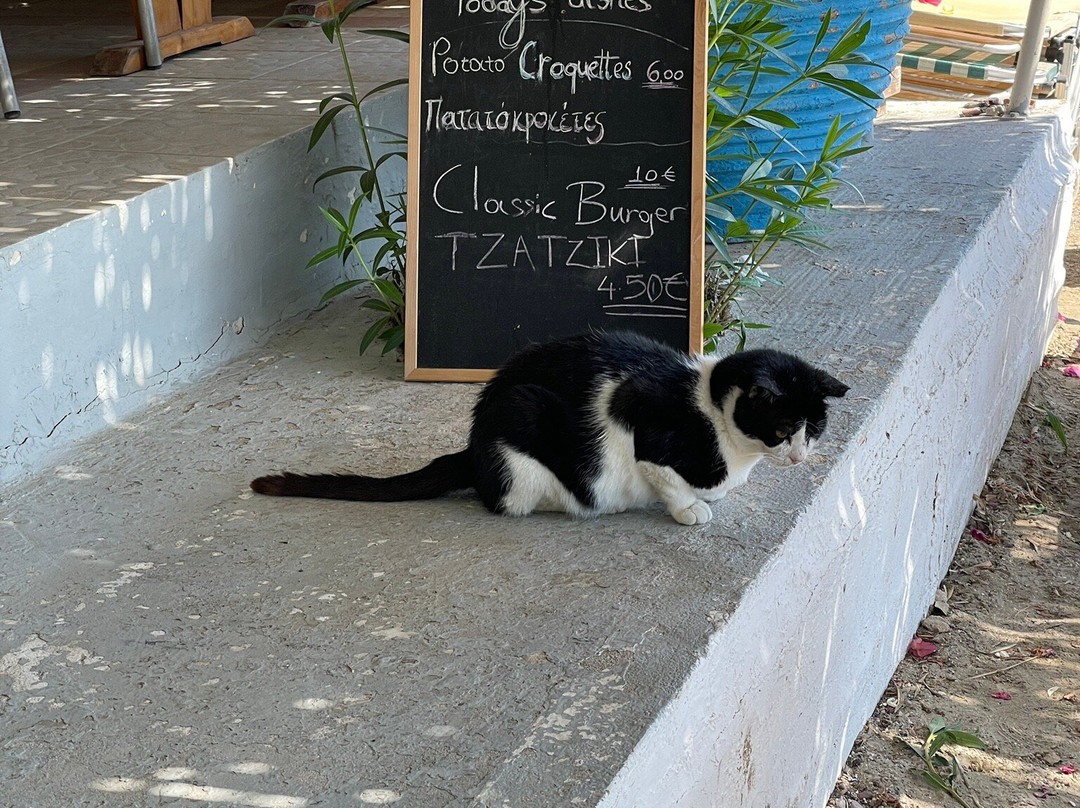 Today's dishes
Potato Croquettes 6,00
Πατατόκροκέτες
10€
Classic Burger
TZATZIKI
4.50€